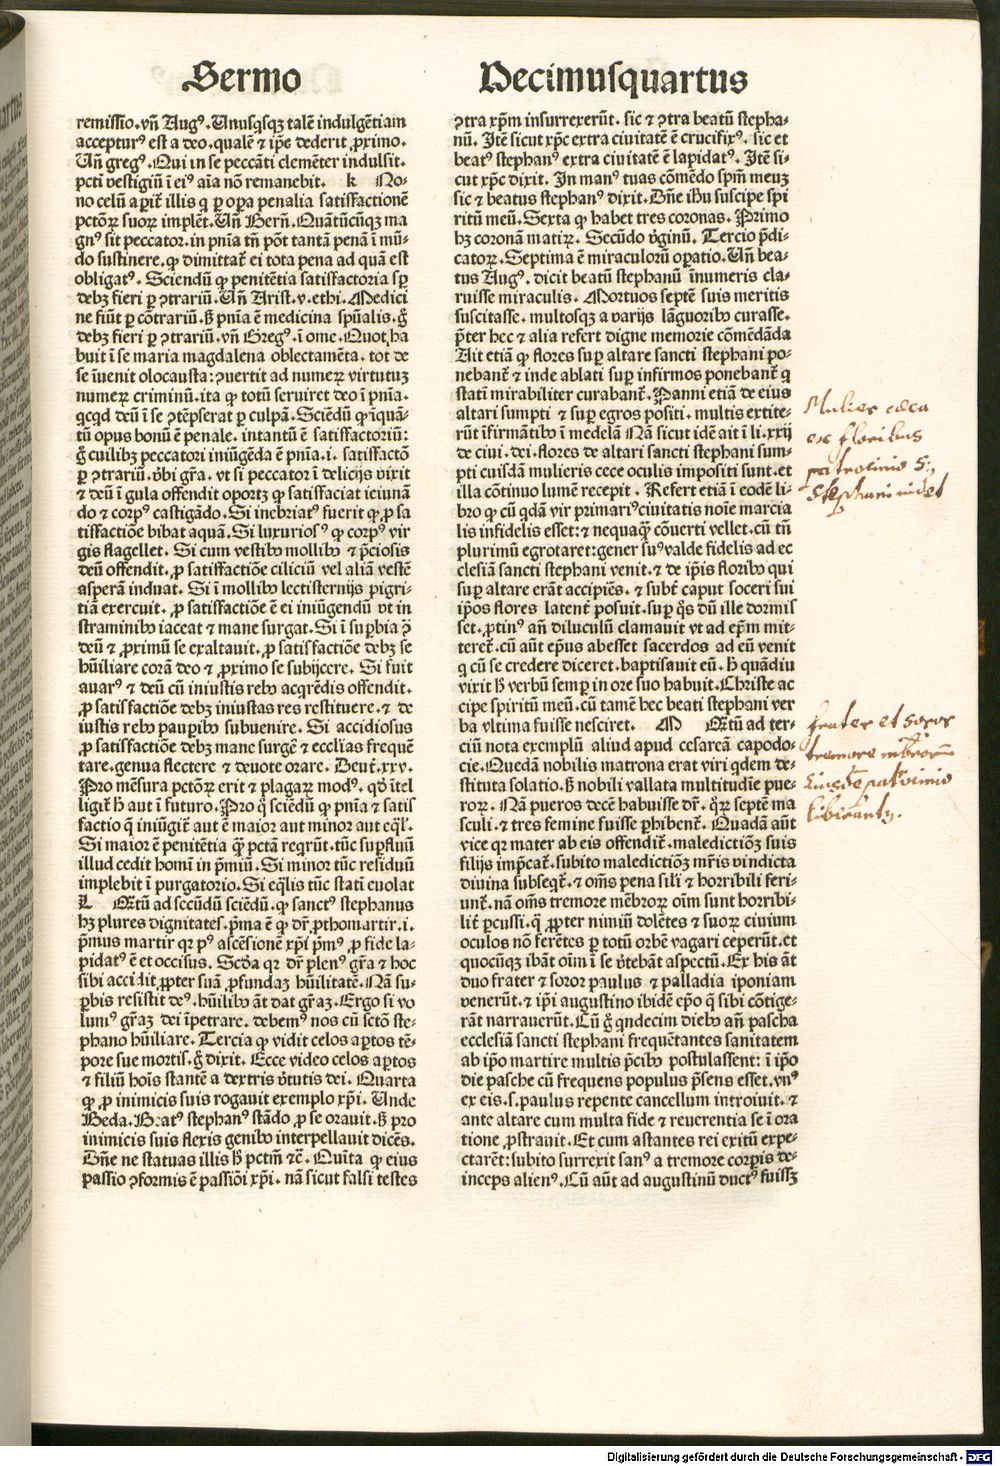 Sermo Decimusquartus
remissio. vñ Augꝰ. Unusqsqꝫ talē indulgētiam
accepturꝰ est a deo. qualē ⁊ ip̄e dederit ꝓximo.
Uñ gregꝰ. Qui in se peccāti clemēter indulsit.
pcti vestigiū ī eiꝰ aīa nō remanebit. k No-
no celū aꝑit̄ illis q ꝑ oꝑa penalia satisfactionē
pctōꝝ suoꝝ implēt. Uñ Berñ. Quātūcūqꝫ ma
gnꝰ sit peccator. in pnīa tñ pōt tantā penā ī mū-
do sustinere. ꝙ dimittat̄ ei tota pena ad quā est
obligatꝰ. Sciendū ꝙ penitētia satisfactoria sꝑ
debꝫ fieri ꝑ ꝯtrariū. Uñ Arist. v. ethi. Medici
ne fiūt ꝑ cōtrariū. sꝫ pnīa ē medicina spūalis. g̊
debꝫ fieri ꝑ ꝯtrariū. vñ Gregꝰ. ī ome. Quot ha
buit ī se maria magdalena oblectamēta. tot de
se īuenit olocausta: ꝯuertit ad numeꝝ virtutuꝫ
numeꝝ criminū. ita ꝙ totū seruiret deo ī pnīa.
qcqd deū ī se ꝯtēpserat ꝑ culpā. Sciēdū ꝙ īquā-
tū opus bonū ē penale. intantū ē satisfactoriū:
g̊ cuilibꝫ peccatori iniūgēda ē pnīa. i. satisfactō
ꝑ ꝯtrariū. v̔bi gr̄a. vt si peccator ī delicijs vixit
⁊ deū ī gula offendit oportꝫ ꝙ satisfaciat ieiunā
do ⁊ corpꝰ castigādo. Si inebriatꝰ fuerit ꝙ ꝓ sa
tisfactiōe bibat aquā. Si luxuriosꝰ ꝙ corpꝰ vir
gis flagellet. Si cum vestibꝰ mollibꝰ ⁊ p̄ciosis
deū offendit. ꝓ satisfactiōe ciliciū vel aliā vestē
asperā induat. Si ī mollibꝰ lectisternijs pigri-
tiā exercuit. ꝓ satisfactiōe ē ei iniūgendū vt in
straminibꝰ iaceat ⁊ mane surgat. Si ī suꝑbia ꝯ̄
deū ⁊ ꝓximū se exaltauit. ꝓ satisfactiōe debꝫ se
hūiliare corā deo ⁊ ꝓximo se subijcere. Si fuit
auarꝰ ⁊ deū cū iniustis rebꝰ acqrēdis offendit.
ꝓ satisfactiōe debꝫ iniustas res restituere. ⁊ de
iustis rebꝰ pauꝑibꝰ subuenire. Si accidiosus
ꝓ satisfactiōe debꝫ mane surgē ⁊ ecclīas frequē
tare. genua flectere ⁊ deuote orare. Deut̄. xxv.
Pro mēsura pctōꝝ erit ⁊ plagaꝝ modꝰ. qd̔ ītel
ligit̄ hꝫ aut ī futuro. Pro q̊ sciēdū ꝙ pnīa ⁊ satis
factio q̄ iniūgit̄ aut ē maior aut minor aut eq̄l̔.
Si maior ē penitētia qꝫ pctā reqrūt. tūc suꝑfluū
illud cedit homī in p̄miū. Si minor tūc residuū
implebit ī purgatorio. Si eq̄lis tūc stati euolat
L Q̄tū ad secūdū sciēdū. ꝙ sanctꝰ stephanus
hꝫ plures dignitates. p̄ma ē ꝙ dr̄ ꝓthomartir. i.
p̄mus martir qꝛ pꝰ ascēsionē xp̄i p̄mꝰ ꝓ fide la-
pidatꝰ ē et occisus. Scd̔a qꝛ dr̄ plenꝰ gr̄a ⁊ hoc
sibi accidit ꝓpter suā ꝓfundaꝫ hūilitatē. Nā su-
ꝑbis resistit deꝰ. hūilibꝰ āt dat gr̄aꝫ. Ergo si vo
lumꝰ gr̄aꝫ dei īpetrare. debemꝰ nos cū sctō ste-
phano hūiliare. Tercia ꝙ vidit celos aꝑtos tē-
pore sue mortis. g̊ dixit. Ecce video celos aꝑtos
⁊ filiū hoīs stantē a dextris v̔tutis dei. Quarta
ꝙ ꝓ inimicis suis rogauit exemplo xp̄i. Unde
Beda. Beatꝰ stephanꝰ stādo ꝓ se orauit. sꝫ pro
inimicis suis flexis genibꝰ interpellauit dicēs.
Dñe ne statuas illis hꝫ pctm̄ ⁊c̄. Quīta ꝙ eius
passio ꝯformis ē passiōi xp̄i. nā sicut falsi testes
ꝯtra xp̄m insurrexerūt. sic ⁊ ꝯtra beatū stepha-
nū. Itē sicut xp̄c extra ciuitatē ē crucifixꝰ. sic et
beatꝰ stephanꝰ extra ciuitatē ē lapidatꝰ. Itē si-
cut xp̄c dixit. In manꝰ tuas cōmēdo spm̄ meuꝫ
sic ⁊ beatus stephanꝰ dixit. Dñe ihū suscipe spi
ritū meū. Sexta ꝙ habet tres coronas. Primo
hꝫ coronā matiꝝ. Secūdo v̔ginū. Tercio p̄di-
catoꝝ. Septima ē miraculorū oꝑatio. Uñ bea-
tus Augꝰ. dicit beatū stephanū īnumeris cla-
ruisse miraculis. Mortuos septē suis meritis
suscitasse. multosqꝫ a varijs lāguoribꝰ curasse.
p̄ter hec ⁊ alia refert digne memorie cōmēdāda
Ait etiā ꝙ flores suꝑ altare sancti stephani po-
nebant̄ ⁊ inde ablati suꝑ infirmos ponebant̄ q̇
stati mirabiliter curabant̄. Panni etiā de eius
altari sumpti ⁊ suꝑ egros positi. multis extite-
rūt īfirmātibꝰ ī medelā Nā sicut idē ait ī li. xxij
de ciui. dei. flores de altari sancti stephani sum-
pti cuisdā mulieris cece oculis impositi sunt. et
illa cōtinuo lumē recepit. Refert etiā ī eodē li-
bro ꝙ cū qdā vir primariꝰ ciuitatis noīe marcia
lis infidelis esset: ⁊ nequaq̄ cōuerti vellet. cū tñ
plurimū egrotaret: gener suꝰ valde fidelis ad ec
clesiā sancti stephani venit. ⁊ de ip̄is floribꝰ qui
suꝑ altare erāt accipiēs. ⁊ subt̄ caput soceri sui
ip̄os flores latent̄ posuit. suꝑ q̊s dū ille dormis
set. ꝓtinꝰ añ diluculū clamauit vt ad ep̄m mit-
teret̄. cū aūt ep̄us abesset sacerdos ad eū venit
q cū se credere diceret. baptisauit eū. hꝫ quādiu
vixit hꝫ verbū semꝑ in ore suo habuit. Christe ac
cipe spiritū meū. cū tamē hec beati stephani ver
ba vltima fuisse nesciret. M Q̄tū ad ter-
ciū nota exemplū aliud apud cesareā capodo-
cie. Quedā nobilis matrona erat viri qdem de-
stituta solatio. sꝫ nobili vallata multitudīe pue-
roꝝ. Nā pueros decē habuisse dr̄. q̊ꝝ septē ma
sculi. ⁊ tres femine fuisse ꝑhibent̄. Quadā aūt
vice qꝛ mater ab eis offendit̄. maledictiōꝫ suis
filijs imp̄cat̄. subito maledictiōꝫ mr̄is vindicta
diuina subseqt̄. ⁊ om̄s pena sil̄i ⁊ horribili feri-
unt̄. nā om̄s tremore mēbroꝝ oīm sunt horribi-
lit̄ ꝑcussi. q̊ ꝓpter nimiū dolētes ⁊ suoꝝ ciuium
oculos nō ferētes ꝑ totū orbē vagari ceperūt. et
quocūqꝫ ibāt oīm ī se v̔tebāt aspectū. Ex his āt
duo frater ⁊ soror paulus ⁊ palladia iponiam
venerūt. ⁊ ip̄i augustino ibidē ep̄o q̊ sibi cōtige-
rāt narrauerūt. Cū g̊ qndecim diebꝰ añ pascha
ecclesiā sancti stephani frequētantes sanitatem
ab ip̄o martire multis p̄cibꝰ postulassent: ī ip̄o
die pasche cū frequens populus p̄sens esset. vnꝰ
ex eis. s. paulus repente cancellum introiuit. ⁊
ante altare cum multa fide ⁊ reuerentia se ī ora
tione ꝓstrauit. Et cum astantes rei exitū expe-
ctarēt: subito surrexit sanꝰ a tremore corꝑis de-
inceps alienꝰ. Cū aūt ad augustinū ductꝰ fuissꝫ
Mulier cęca
ex floribus
patrocinio S.
Stephani videt
frater et soror
tremore
patrocinio
Digitalisierung gefördert durch die Deutsche Forschungsgemeinschaft - DFG